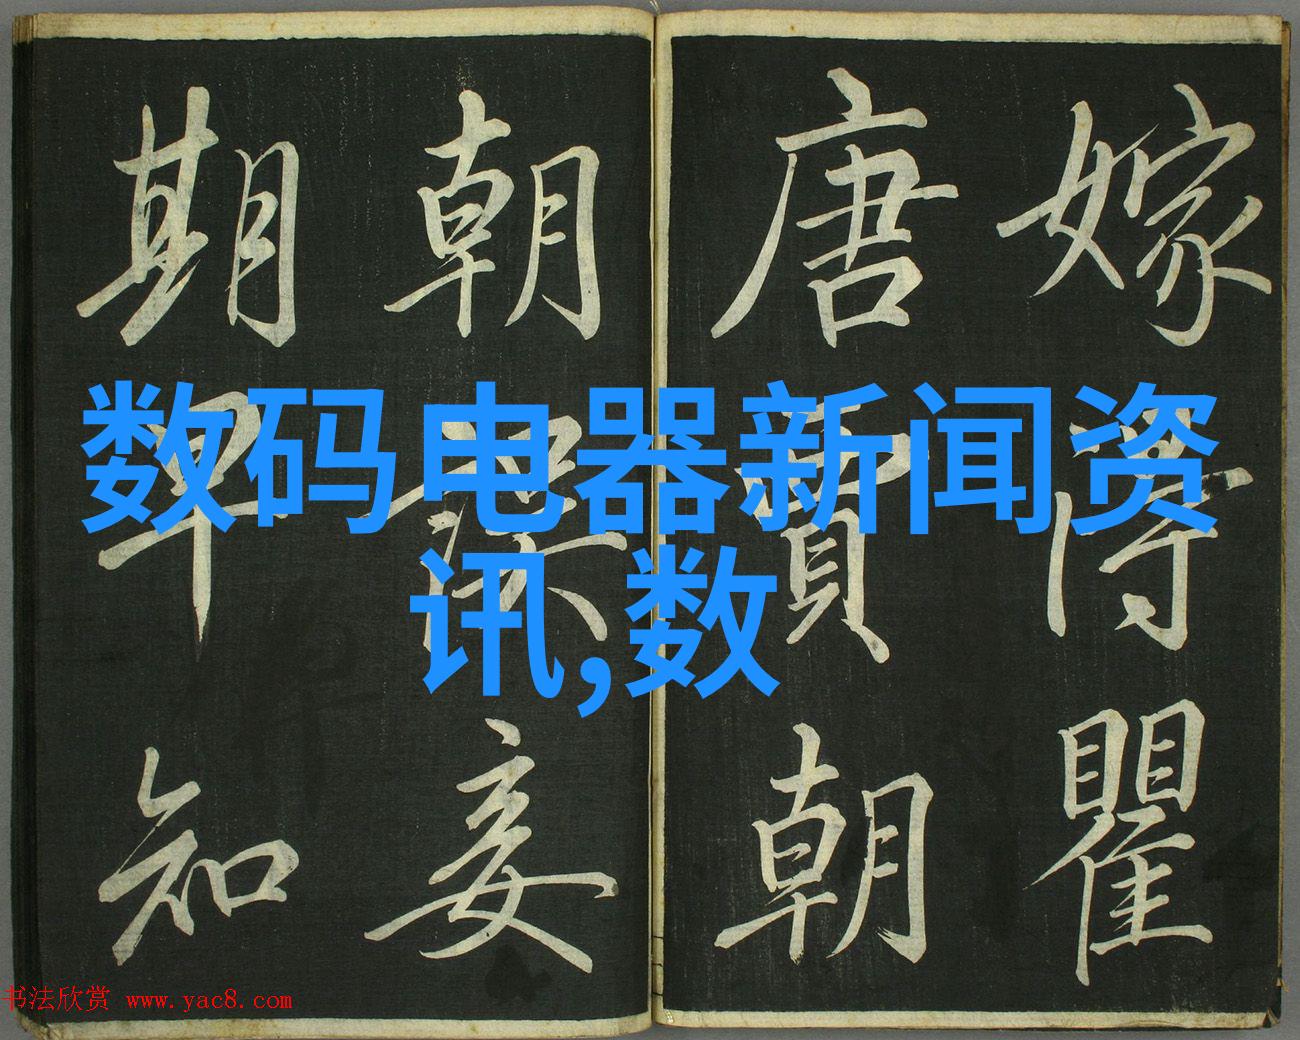 嫁得瞿
唐賈朝
朝妾
期早知
数码电器新闻资
讯,数
书法欣赏 www.yac8.com